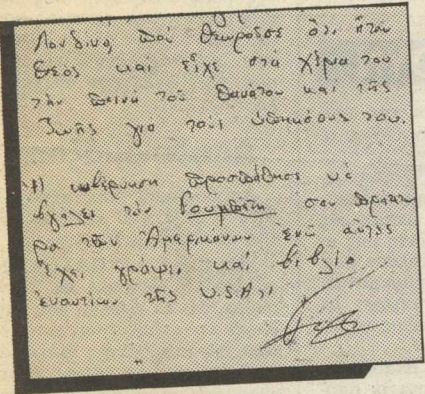 Λονδίνο, ποὺ θεωροῦσε ὅτι ἦταν
Θεὸς καὶ εἶχε στα χέρια του
τὴν ποινὴ τοῦ θανάτου καὶ τῆς
ζωῆς για τοὺς ὑπηκόους του.
Ἡ κυβέρνηση προσπάθησε νὰ
βγάλει τὸν σαν πράκτο
ρα τῶν Ἀμερικανων ἐνῶ αὐτὸς
ἔχει γράψει καὶ βιβλίο
ἐναντίων τῆς U.S.A,